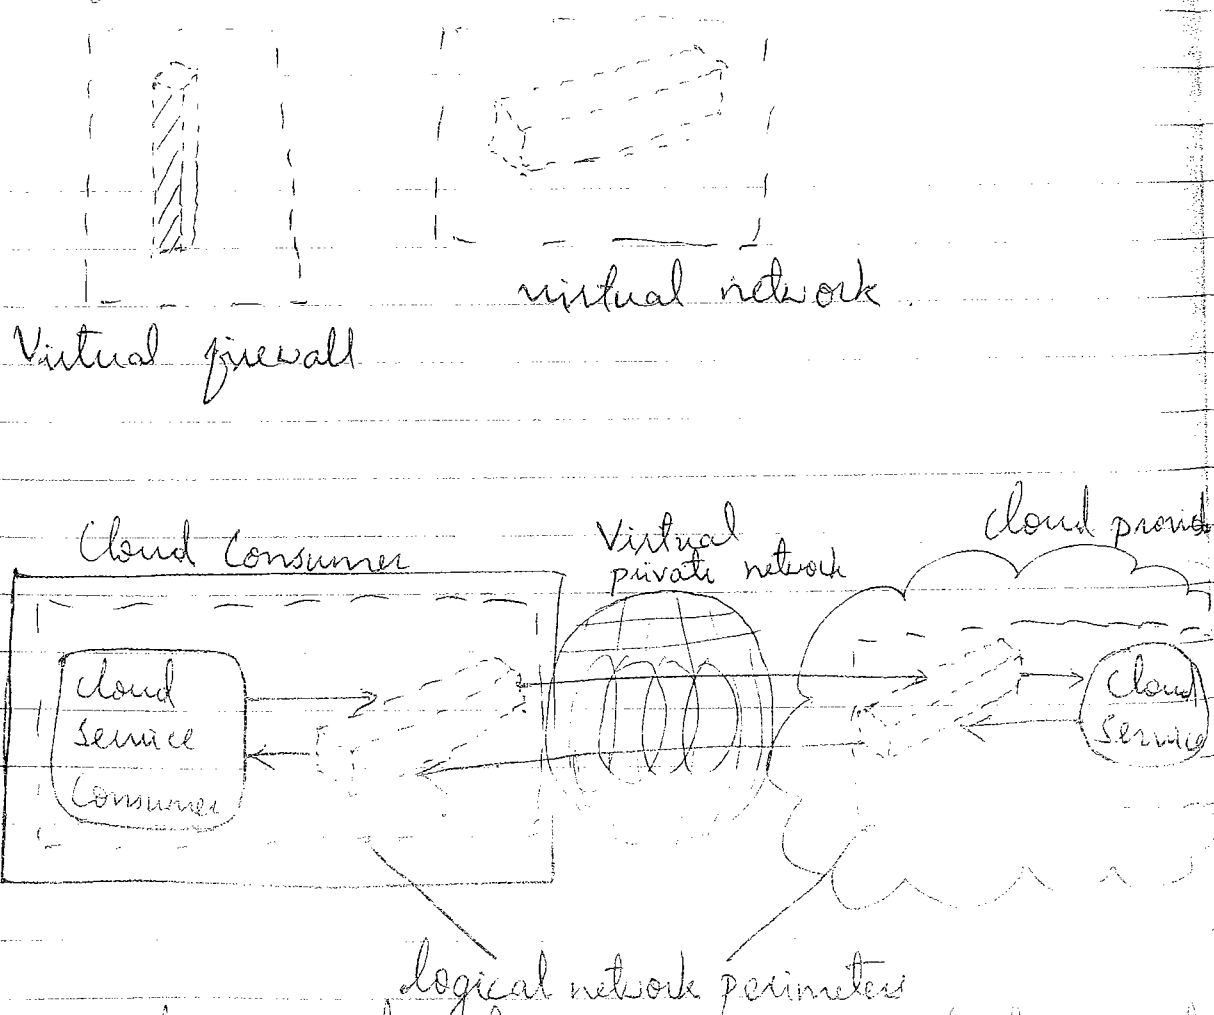 virtual network.
Virtual firewall
Cloud Consumer
Virtual
private network
Cloud provid
Cloud
Service
Consumer
Cloud
Service
logical network perimeters